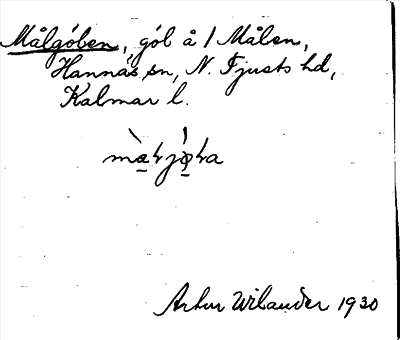 Målgöben, göl å / Målen,
Hannäs sn, N. Tjusts hd,
Kalmar l.
Artur Wilander 1930